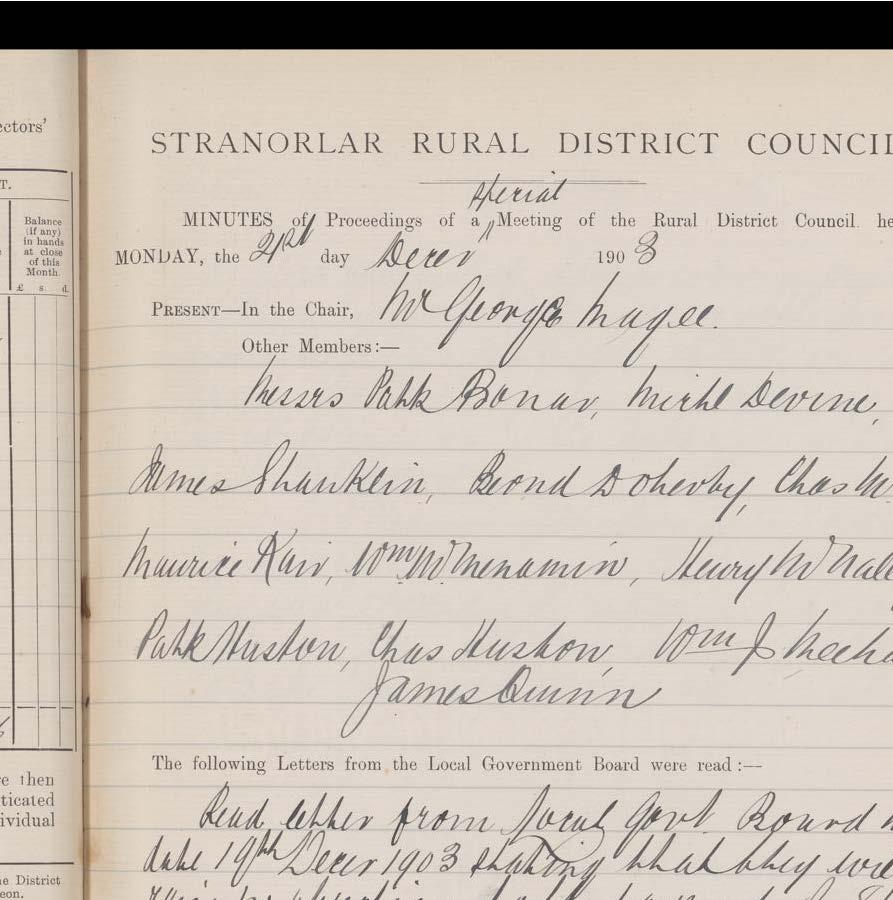 ectors'
T.
Balance
(if any)
in hands
at close
of this
Month.
£ s. d.
e then
ticated
ividual
ne District
eon.
STRANORLAR RURAL DISTRICT COUNCIL
special
MINUTES of Proceedings of a Meeting of the Rural District Council he
MONDAY, the 21st day Decer 1903
PRESENT—In the Chair, Mr George Magee.
Other Members:—
Messrs Patk Bonar, Michl Devine,
James Shanklin, Bernd Doherty, Chas Mc
Maurice Kair, Wm McMenamin, Henry McNal
Patk Huston, Chas Huston, Wm J Meeha
James Quinn
The following Letters from the Local Government Board were read:—
Read letter from Local Govt. Board
date 19th Decer 1903 stating that they